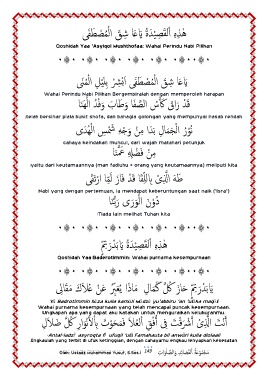 هٰذِهِ الْقَصِيْدَةُ يَاعَاشِقَ الْمُصْطَفَى
Qoshidah Yaa 'Asyiqol Mushthofaa: Wahai Perindu Nabi Pilihan
يَاعَاشِقَ الْمُصْطَفَى اَبْشِرْ بِنَيْلِ الْمُنَى
Wahai Perindu Nabi Pilihan Bergembiralah dengan memperoleh harapan
قَدْ رَاقَ كَأْسُ الصَّفَا وَطَابَ وَقْدُ الْهَنَا
telah bersinar piala bukit shofa, dan bahagia golongan yang mempunyai hasab rendah
نُوْرُ الْجَمَالِ بَدَا مِنْ وَجْهِ شَمْسِ الْهُدَى
cahaya keindahan muncul, dari wajah matahari petunjuk
مِنْ فَضْلِهِ عَمَّنَا
yaitu dari keutamaannya (man faduhu = orang yang keutamaannya) meliputi kita
طٰهَ الَّذِيْ بِاللِّقَا قَدْ فَازَ لَمَّا ارْتَقَى
Nabi yang dengan pertemuan, ia mendapat keberuntungan saat naik (Isra')
دُوْنَ الْوَرَى رَبُّنَا
Tiada lain melihat Tuhan kita
هٰذِهِ الْقَصِيْدَةُ يَابَدْرَتِمٍّ
Qoshidah Yaa Badrotimmin: Wahai purnama kesempurnaan
يَابَدْرَتِمٍّ حَازَ كُلَّ كَمَالِ مَاذَا يُعَبِّرُ عَنْ عُلَاكَ مَقَالِي
Yi Badrotimmin hiza kulla kamali maadzi yu'abbiru 'an 'ulika maqili
Wahai purnama kesempurnaan yang telah mencapai puncak kesempurnaan.
Ungkapan apa yang dapat aku katakan untuk menguraikan keluhuranmu
اَنْتَ الَّذِيْ اَشْرَقْتَ فِيْ اُفُقِ الْعُلَا فَمَحَوْتَ بِالْاَنْوَارِ كُلَّ ضَلَالِ
Oleh: Ustadz Muhammad Yusuf, S.Sos.I
149